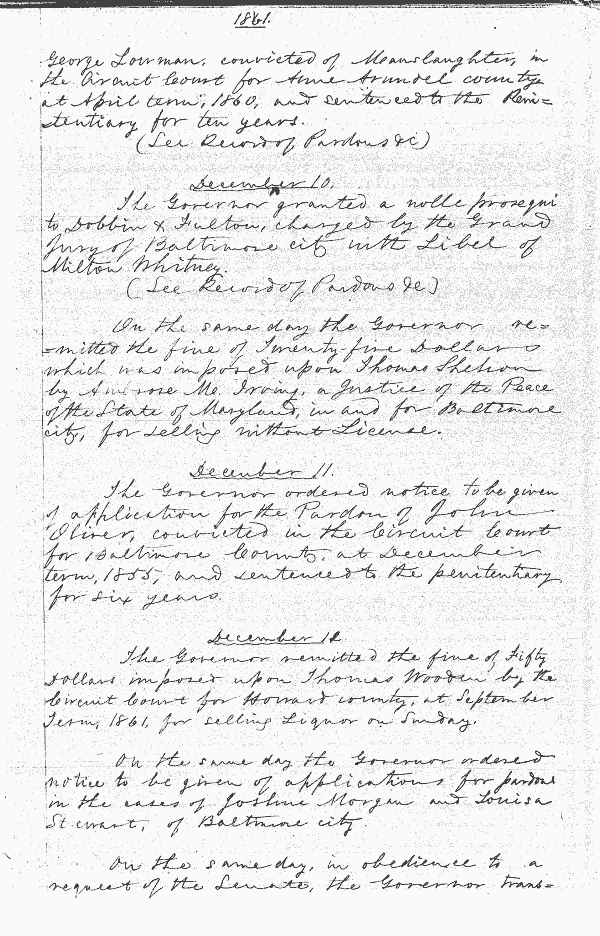 1861.
George Lowman, convicted of Manslaughter, in
the Circuit Court for Anne Arundel county
at April term, 1860, and sentenced to the Peni=
tentiary for ten years.
(See Record of Pardons &c)
December 10.
The Governor granted a nolle prosequi
to Dobbin & Fulton, charged by the Grand
Jury of Baltimore city with Libel of
Milton Whitney.
(See Record of Pardons &c)
On the same day the Governor re=
=mitted the fine of Twenty five Dollars
which was imposed upon Thomas
by Ambrose Mc. Irving, a Justice of the Peace
of the State of Maryland, in and for Baltimore
city, for selling without License.
December 11.
The Governor ordered notice to be given
of application for the Pardon of John
Oliver, convicted in the Circuit Court
for Baltimore County, at December
term, 1855, and sentenced to the penitentiary
for six years.
December 12
The Governor remitted the fine of Fifty
Dollars imposed upon Thomas Wooden by the
Circuit Court for Howard county, at September
Term, 1861, for selling Liquor on Sunday.
On the same day the Governor ordered
notice to be given of applications for pardons
in the cases of Joshua Morgan and Louisa
Stewart, of Baltimore city.
On the same day, in obedience to a
request of the Senate, the Governor trans=